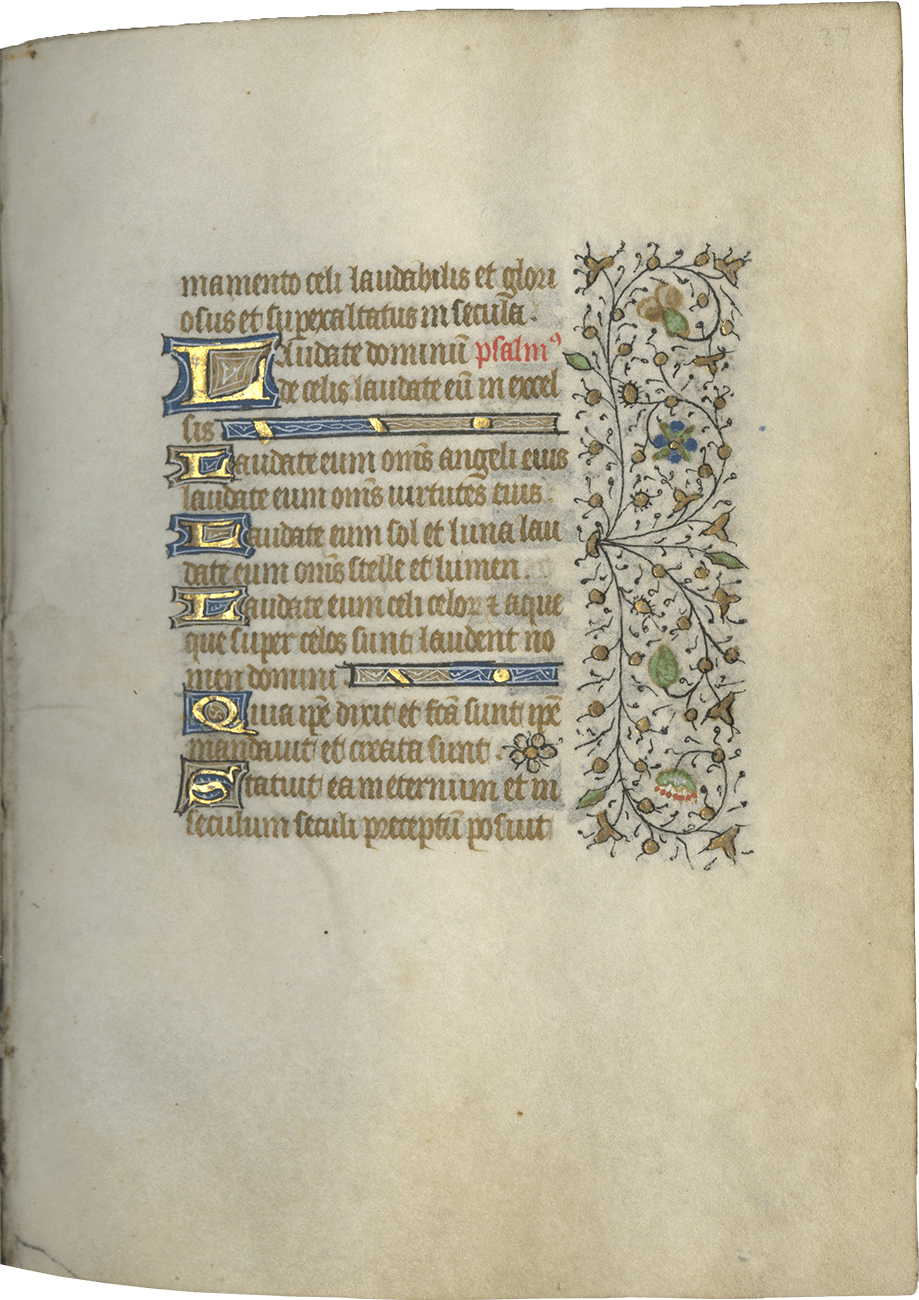 37
mamento celi laudabilis et glori
osus et supexaltatus in secula.
Laudate dominū psalmꝰ
de celis laudate eū in excel
sis
Laudate eum om̄s angeli eius
laudate eum om̄s uirtutes eius.
Laudate eum sol et luna lau
date eum om̄s stelle et lumen.
Laudate eum celi celoꝝ ⁊ aque
que super celos sunt laudent no
men domini
Quia ip̄e dixit et fcā sunt ip̄e
mandauit et creata sunt.
Statuit ea in eternum et in
seculum seculi preceptū posuit